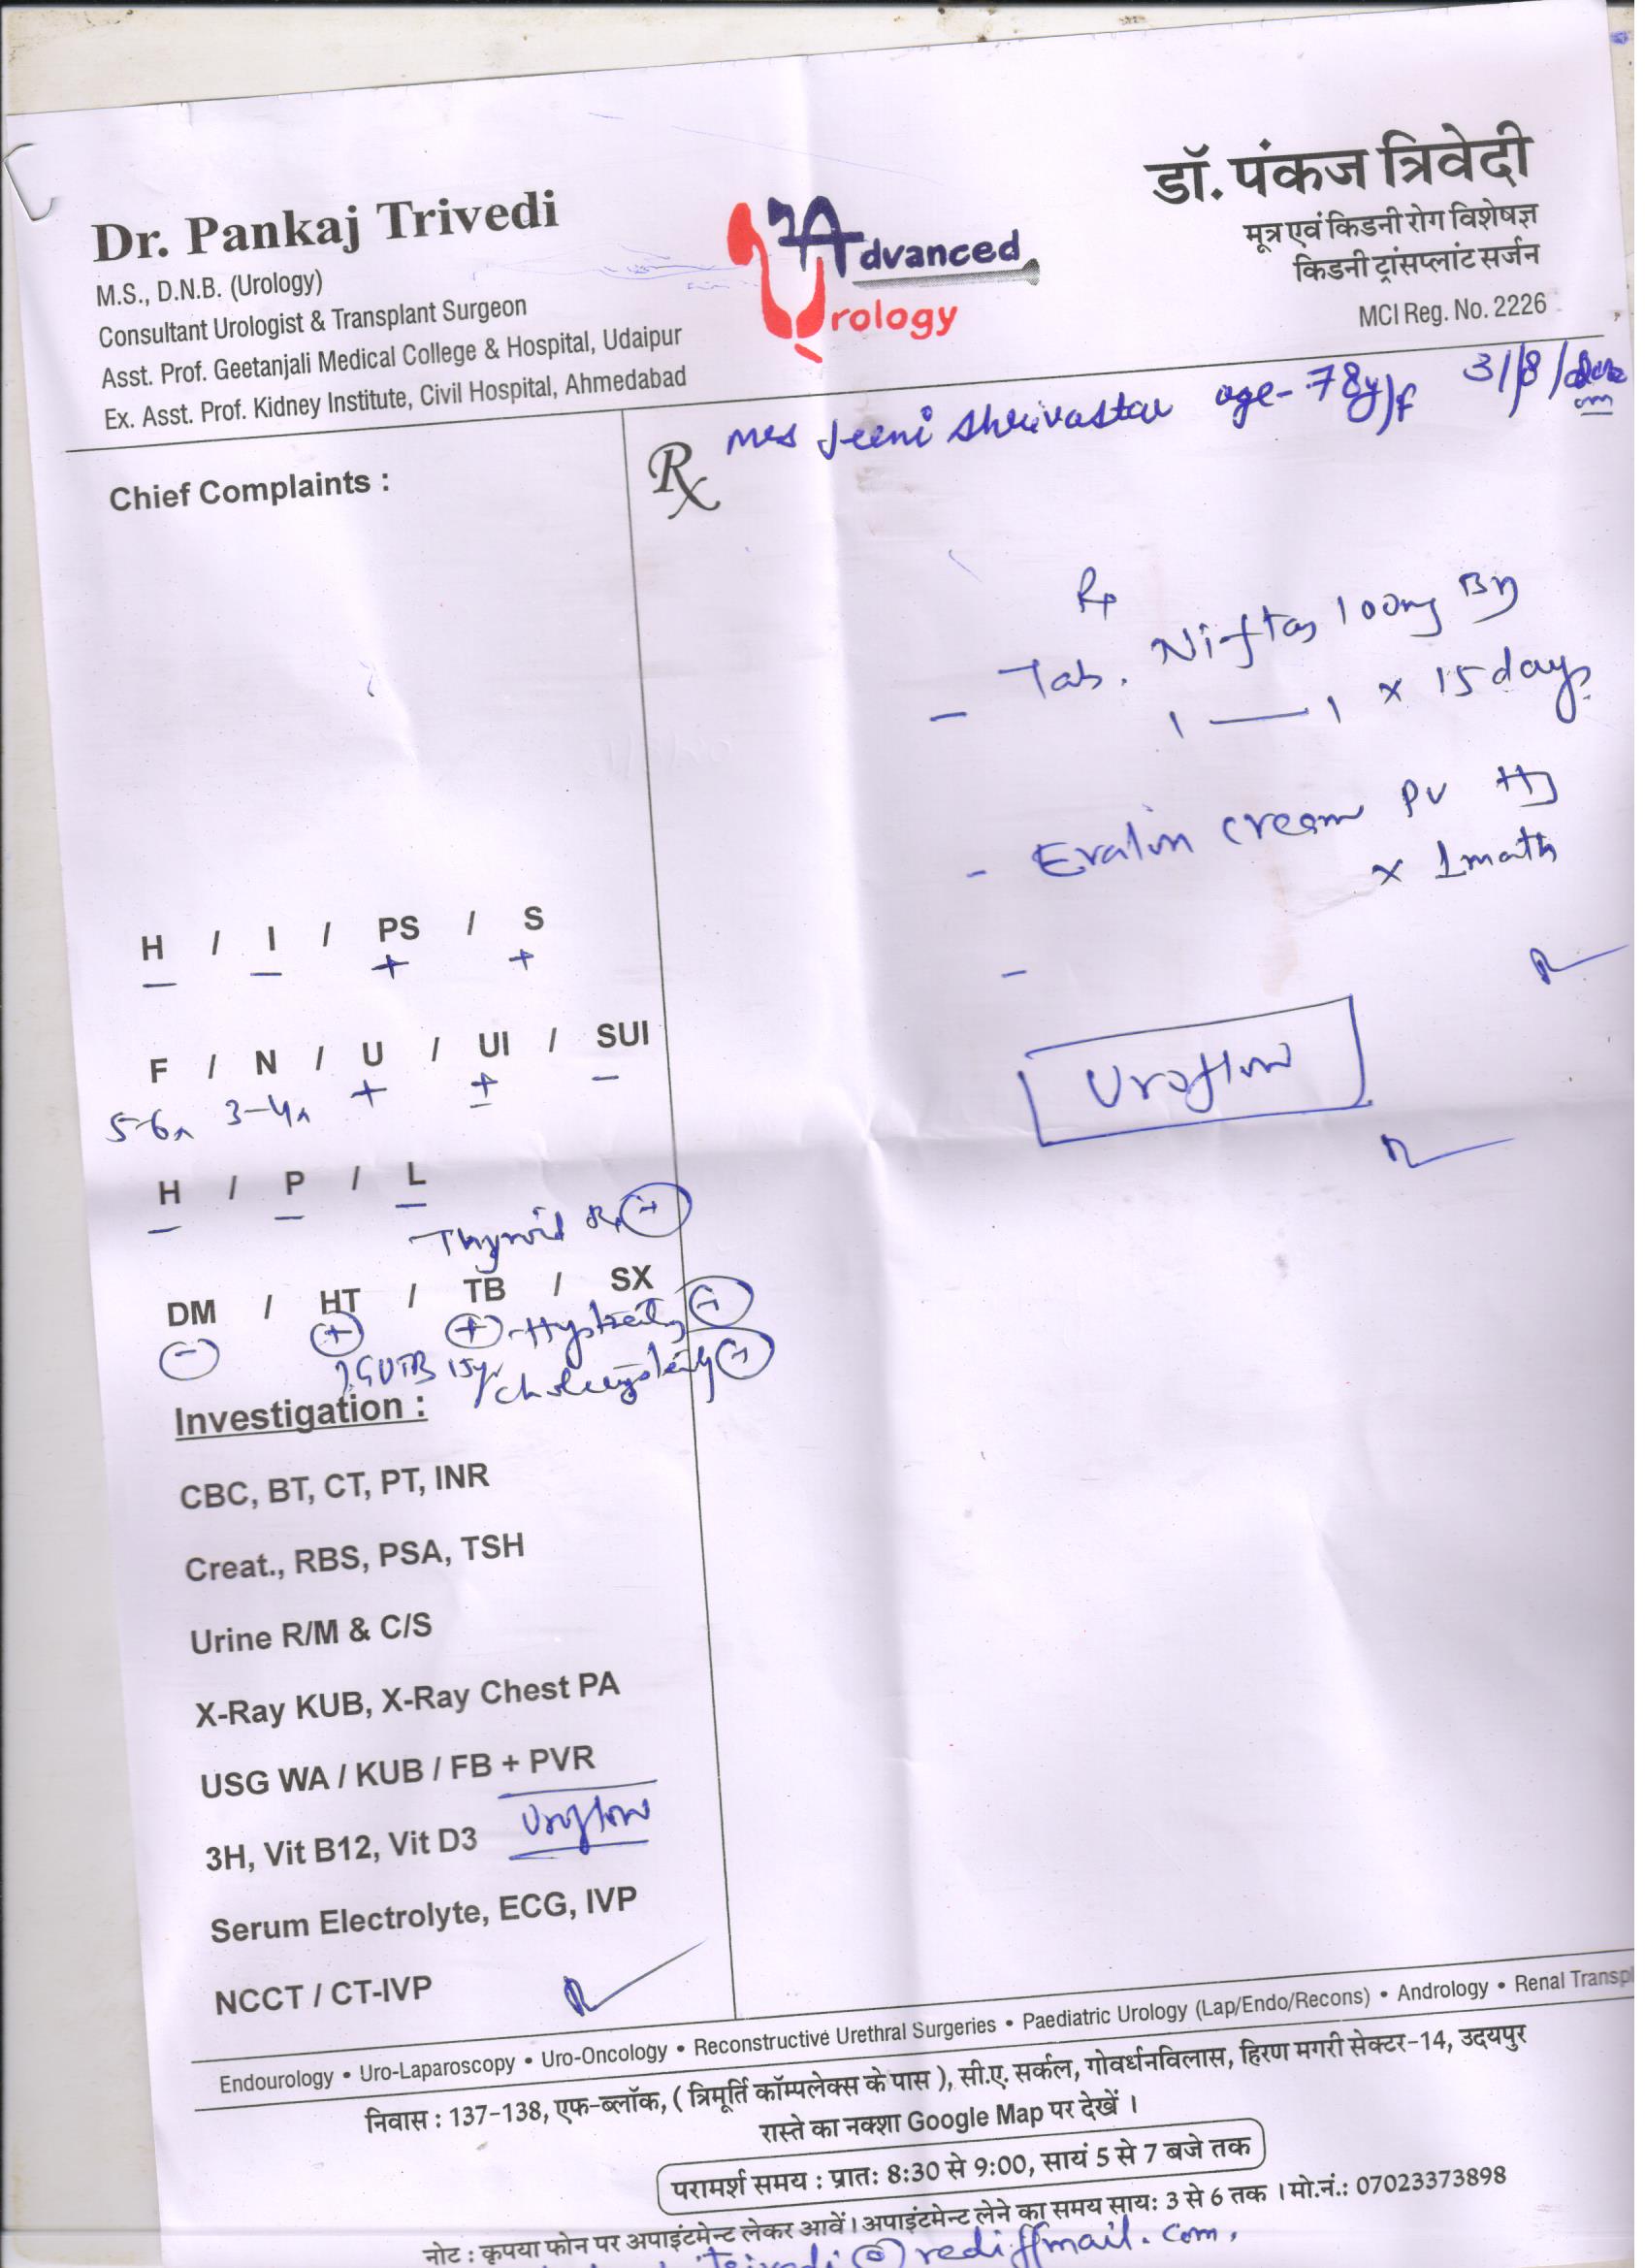 Dr. Pankaj Trivedi
M.S., D.N.B. (Urology)
Consultant Urologist & Transplant Surgeon
Asst. Prof. Geetanjali Medical College & Hospital, Udaipur
Ex. Asst. Prof. Kidney Institute, Civil Hospital, Ahmedabad
Advanced
Urology
डॉ. पंकज त्रिवेदी
मूत्र एवं किडनी रोग विशेषज्ञ
किडनी ट्रांसप्लांट सर्जन
MCI Reg. No. 2226
Mrs Jeeni Shrivastav age-78y/f 31/8/
Chief Complaints :
Rx
Rp
- Tab. Niftas 100mg BD
1 — 1 x 15 days
- Evalin cream PV
x 1 month
-
Uroflow
H / I / PS / S
— — + +
F / N / U / UI / SUI
5-6x 3-4x + ± —
H / P / L
— — —
Thyroid Rx (+)
DM / HT / TB / SX
(-) (+) (+)
GUTB 15y
Investigation :
CBC, BT, CT, PT, INR
Creat., RBS, PSA, TSH
Urine R/M & C/S
X-Ray KUB, X-Ray Chest PA
USG WA / KUB / FB + PVR
Uroflow
3H, Vit B12, Vit D3
Serum Electrolyte, ECG, IVP
NCCT / CT-IVP
Endourology • Uro-Laparoscopy • Uro-Oncology • Reconstructive Urethral Surgeries • Paediatric Urology (Lap/Endo/Recons) • Andrology • Renal Transpl
निवास : 137-138, एफ-ब्लॉक, ( त्रिमूर्ति कॉम्पलेक्स के पास ), सी.ए. सर्कल, गोवर्धनविलास, हिरण मगरी सेक्टर-14, उदयपुर
रास्ते का नक्शा Google Map पर देखें ।
परामर्श समय : प्रातः 8:30 से 9:00, सायं 5 से 7 बजे तक
नोट : कृपया फोन पर अपाइंटमेन्ट लेकर आवें। अपाइंटमेन्ट लेने का समय सायः 3 से 6 तक । मो.नं.: 07023373898
@rediffmail.com,